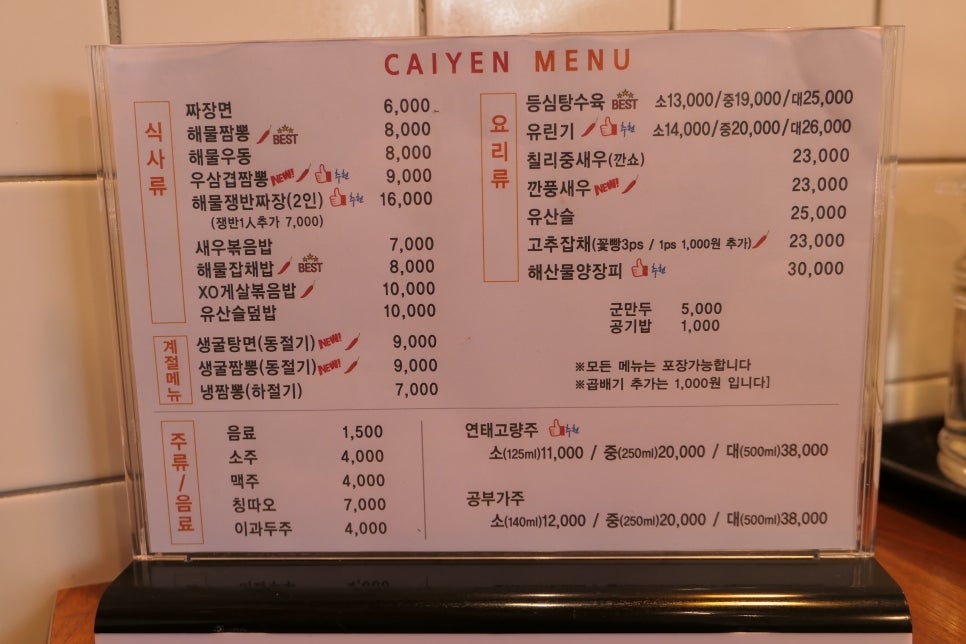 CAIYEN MENU
식사류
짜장면 6,000
해물짬뽕 BEST 8,000
해물우동 8,000
우삼겹짬뽕 NEW! 추천 9,000
해물쟁반짜장(2인) 추천 16,000
(쟁반1人추가 7,000)
새우볶음밥 7,000
해물잡채밥 BEST 8,000
XO게살볶음밥 10,000
유산슬덮밥 10,000
계절메뉴
생굴탕면(동절기) NEW! 9,000
생굴짬뽕(동절기) NEW! 9,000
냉짬뽕(하절기) 7,000
요리류
등심탕수육 BEST 소13,000/중19,000/대25,000
유린기 추천 소14,000/중20,000/대26,000
칠리중새우(깐쇼) 23,000
깐풍새우 NEW! 23,000
유산슬 25,000
고추잡채(꽃빵3ps / 1ps 1,000원 추가) 23,000
해산물양장피 추천 30,000
군만두 5,000
공기밥 1,000
※모든 메뉴는 포장가능합니다
※곱배기 추가는 1,000원 입니다]
주류/음료
음료 1,500
소주 4,000
맥주 4,000
칭따오 7,000
이과두주 4,000
연태고량주 추천
소(125ml)11,000 / 중(250ml)20,000 / 대(500ml)38,000
공부가주
소(140ml)12,000 / 중(250ml)20,000 / 대(500ml)38,000